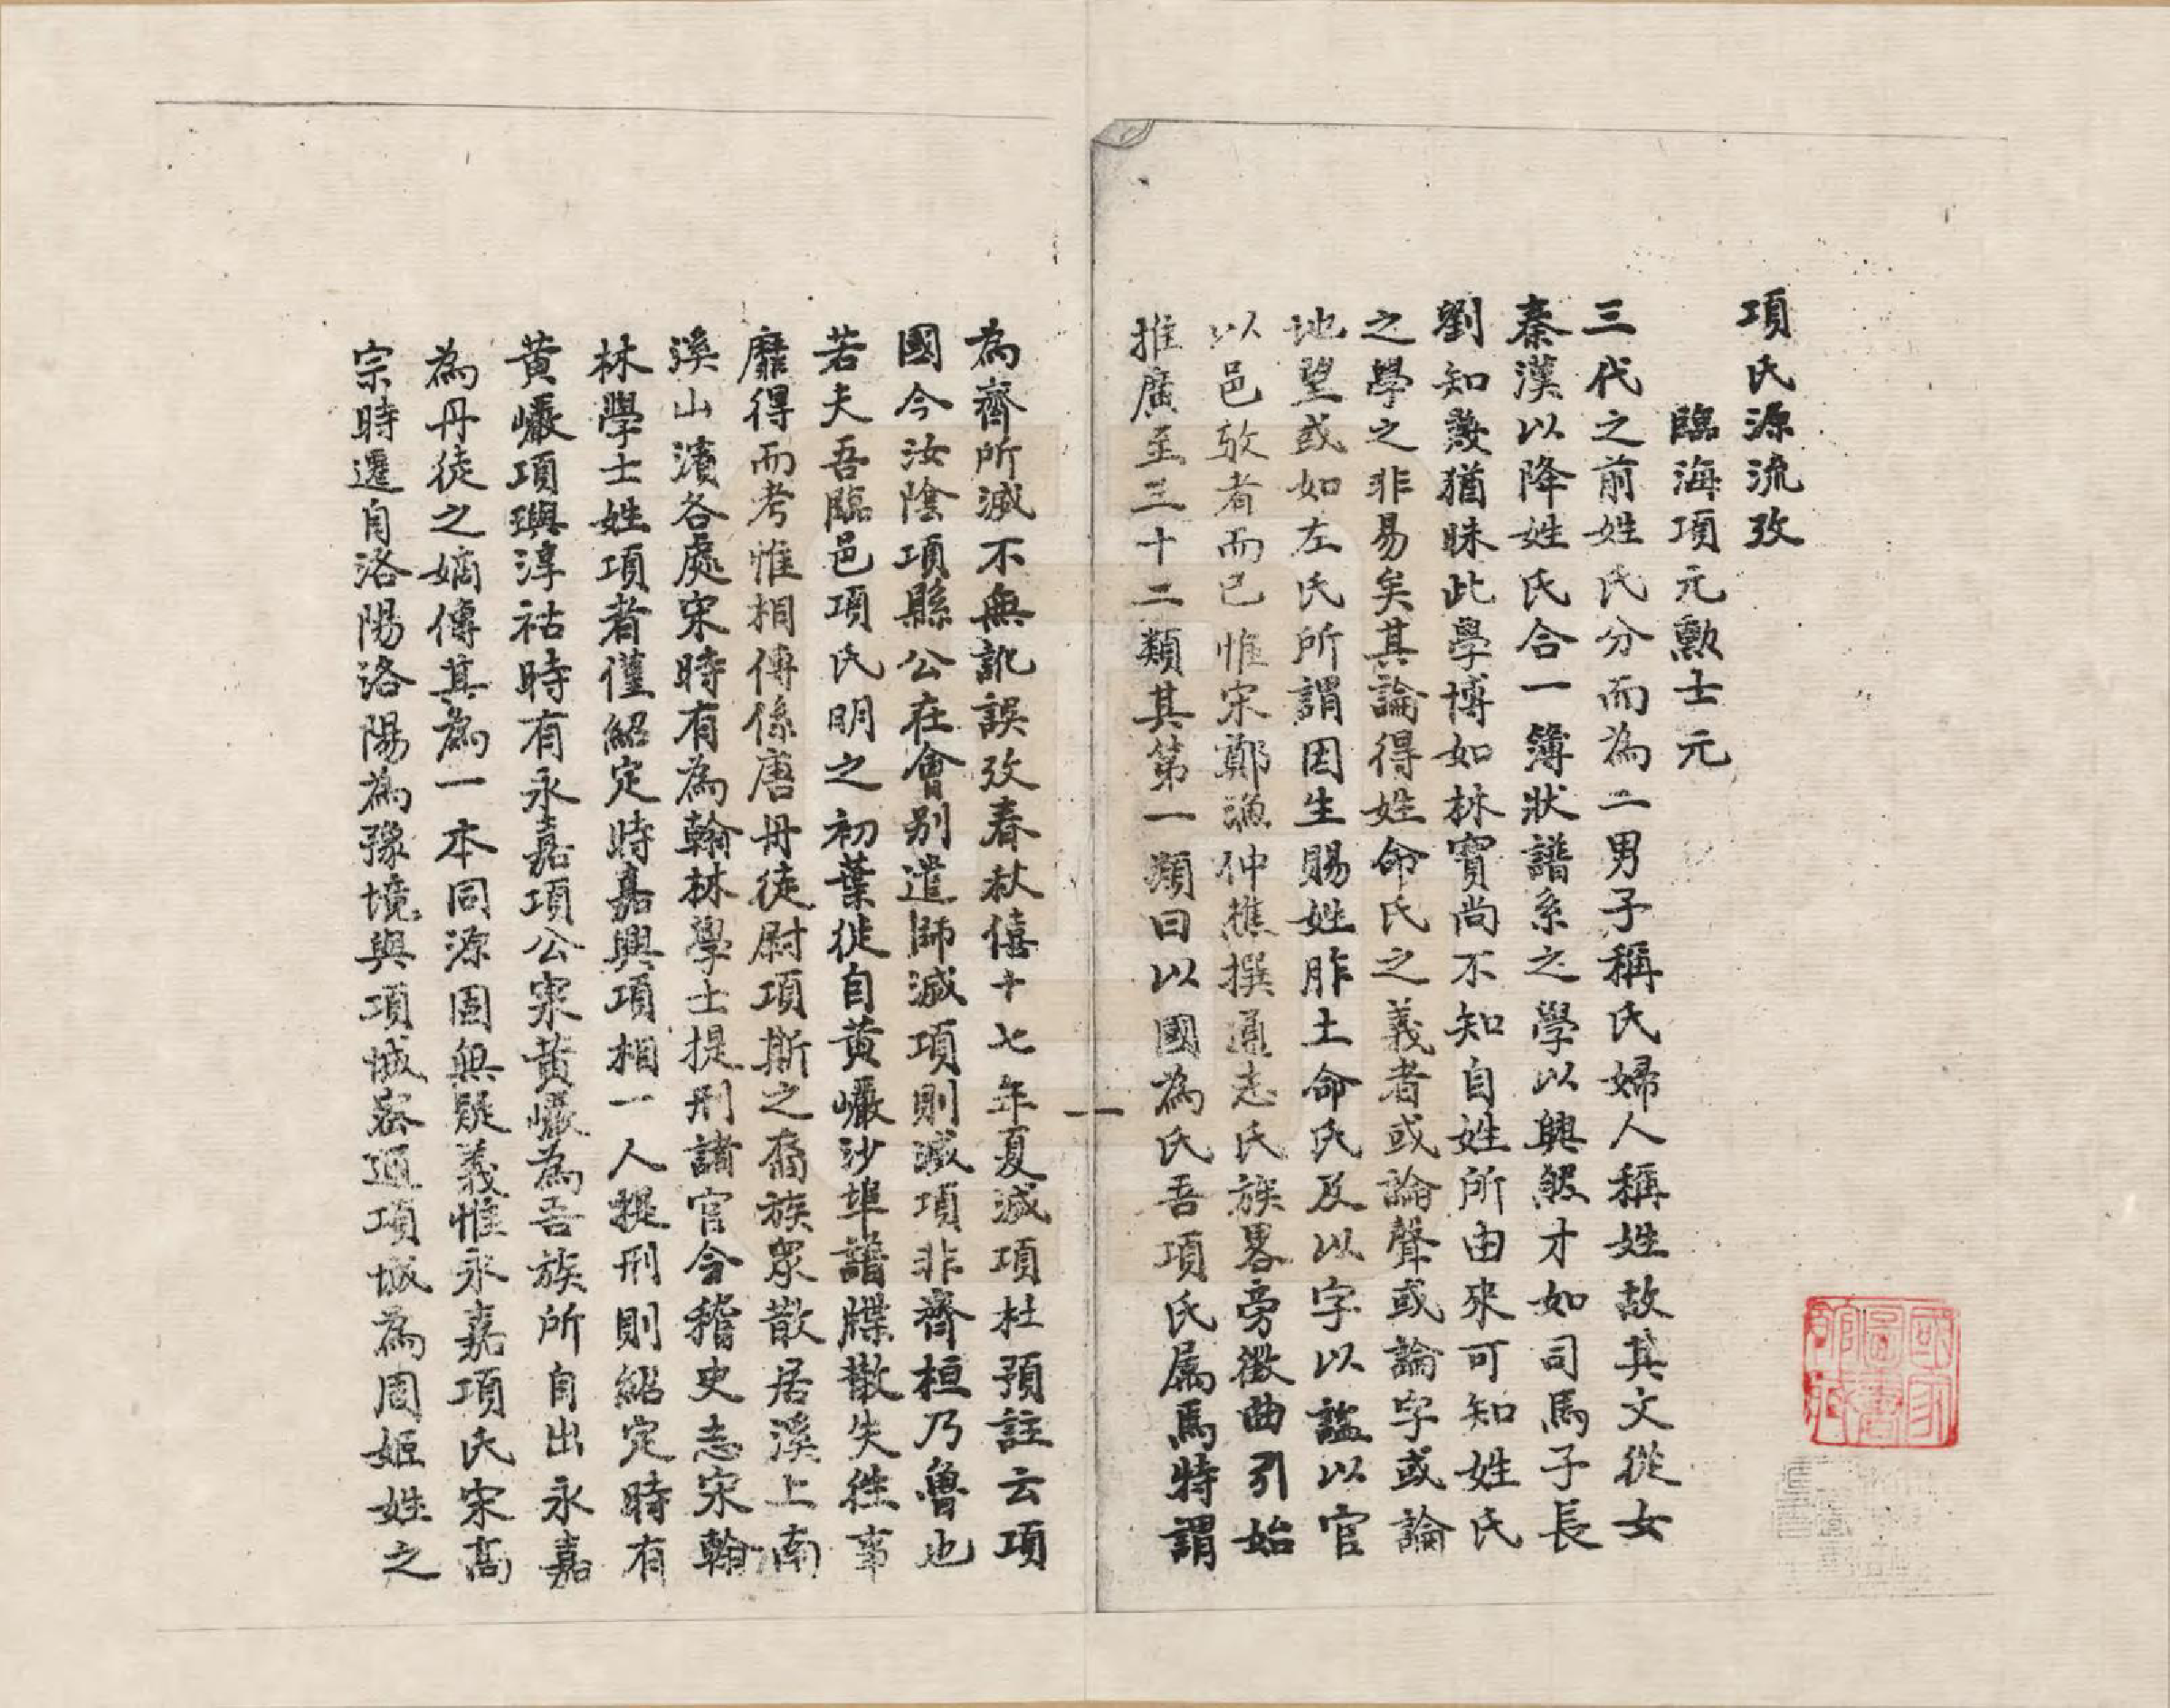 項氏源流攷
臨海項元勲士元
三代之前姓氏分而為二男子稱氏婦人稱姓故其文從女
秦漢以降姓氏合一簿狀譜系之學以興然才如司馬子長
劉知幾猶昧此學博如林寶尚不知自姓所由來可知姓氏
之學之非易矣其論得姓命氏之義者或論聲或論字或論
地望或如左氏所謂因生賜姓胙土命氏及以字以謚以官
以邑攷者而已惟宋鄭漁仲樵撰通志氏族畧旁徵曲引始
推廣至三十二類其第一類曰以國為氏吾項氏屬焉特謂
為齊所滅不無訛誤攷春秋僖十七年夏滅項杜預註云項
國今汝陰項縣公在會别遣師滅項則滅項非齊桓乃魯也
若夫吾臨邑項氏明之初葉徙自黄巖沙埠譜牒散失徃事
靡得而考惟相傳係唐丹徒尉項斯之裔族衆散居溪上南
溪山濱各處宋時有為翰林學士提刑諸官今稽史志宋翰
林學士姓項者僅紹定時嘉興項相一人提刑則紹定時有
黄巖項璵淳祐時有永嘉項公寀黄巖為吾族所自出永嘉
為丹徒之嫡傳其為一本同源固無疑義惟永嘉項氏宋高
宗時遷自洛陽洛陽為豫境與項城密邇項城為周姬姓之
國家圖書館藏